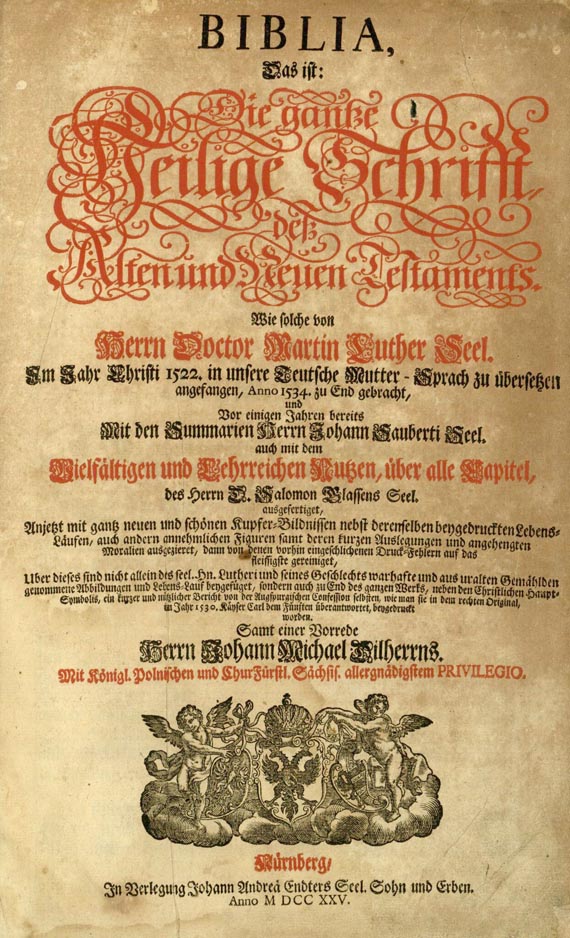 BIBLIA,
Das ist:
Die gantze
Heilige Schrifft,
deß
Alten und Neuen Testaments.
Wie solche von
Herrn Doctor Martin Luther Seel.
Im Jahr Christi 1522. in unsere Teutsche Mutter-Sprach zu übersetzen
angefangen, Anno 1534. zu End gebracht,
und
Vor einigen Jahren bereits
Mit den Summarien Herrn Johann Sauberti Seel.
auch mit dem
Vielfältigen und Lehrreichen Nutzen, über alle Capitel,
des Herrn D. Salomon Glassens Seel.
ausgefertiget,
Anjetzt mit gantz neuen und schönen Kupfer-Bildnissen nebst derenselben beygedruckten Lebens-
Läufen, auch andern annehmlichen Figuren samt deren kurzen Auslegungen und angehengten
Moralien ausgezieret, dann von denen vorhin eingeschlichenen Druck-Fehlern auf das
fleissigste gereiniget,
Uber dieses sind nicht allein des seel. Hn. Lutheri und seines Geschlechts warhafte und aus uralten Gemählden
genommene Abbildungen und Lebens-Lauf beygefüget, sondern auch zu End des ganzen Werks, neben den Christlichen Haupt-
Symbolis, ein kurzer und nützlicher Bericht von der Augspurgischen Confession selbsten, wie man sie in dem rechten Original,
in Jahr 1530. Käyser Carl dem Fünften überantwortet, beygedruckt
worden.
Samt einer Vorrede
Herrn Johann Michael Dilherrns.
Mit Königl. Polnischen und ChurFürstl. Sächsis. allergnädigstem PRIVILEGIO.
Nürnberg/
In Verlegung Johann Andreä Endters Seel. Sohn und Erben.
Anno M DCC XXV.